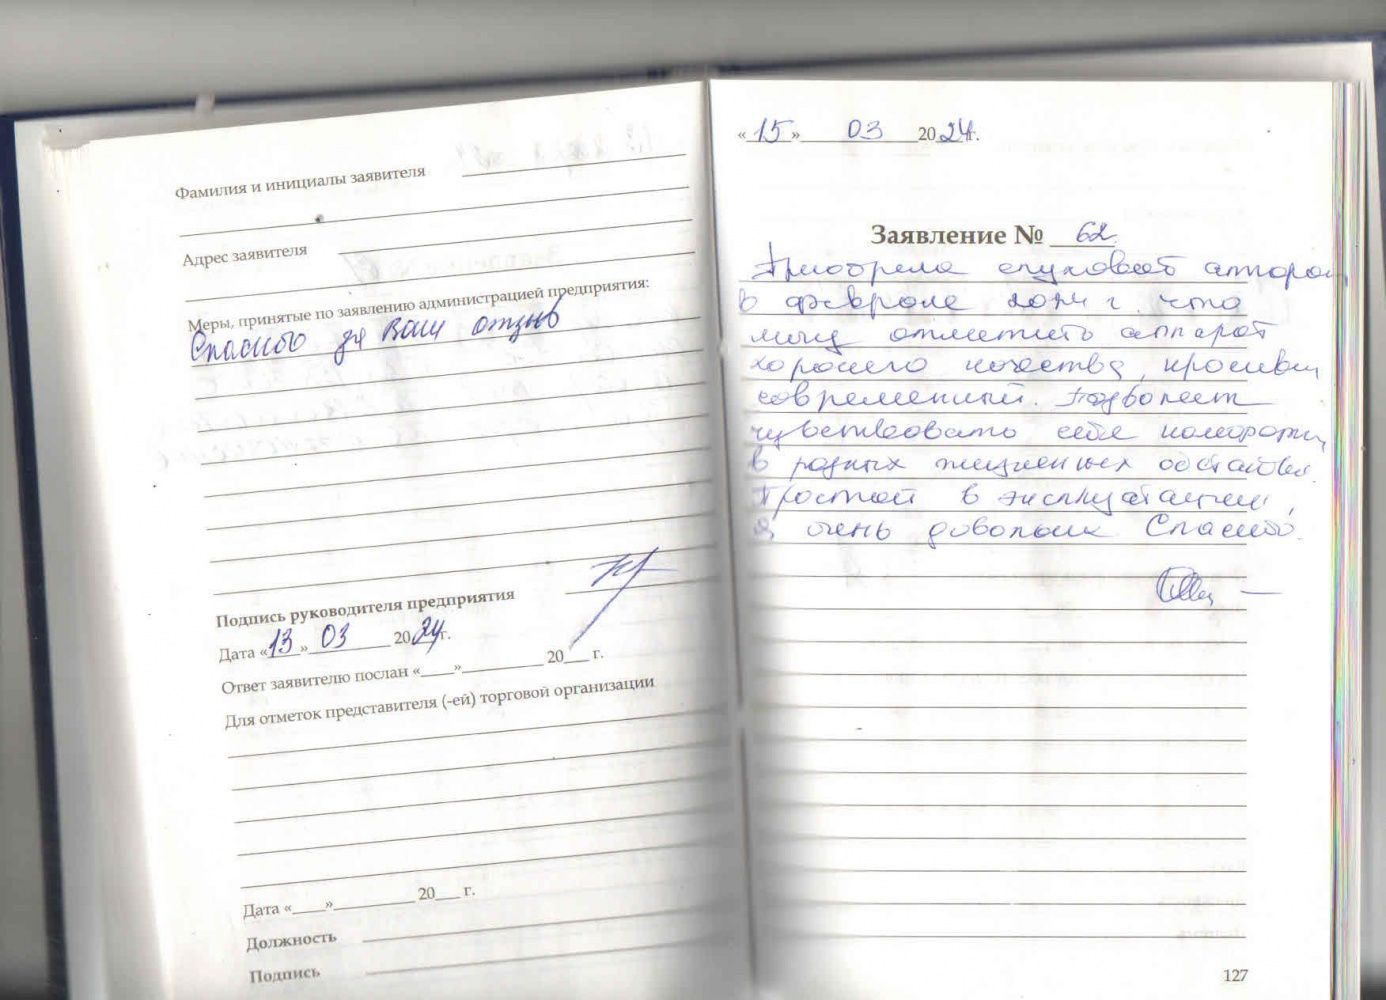 Фамилия и инициалы заявителя
Адрес заявителя
Меры, принятые по заявлению администрацией предприятия:
Спасибо за Ваш отзыв
Подпись руководителя предприятия
Дата «13» 03 2024г.
Ответ заявителю послан «____»__________ 20___ г.
Для отметок представителя (-ей) торговой организации
Дата «____»__________ 20___ г.
Должность
Подпись
«15» 03 2024г.
Заявление № 62.
Приобрела слуховой аппарат
в феврале 2024 г, что
могу отметить аппарат
хорошего качества, красивый
современный. Позволяет
чувствовать себя комфортно
в разных жизненных
Простой в эксплуатации,
я очень довольна Спасибо.
127